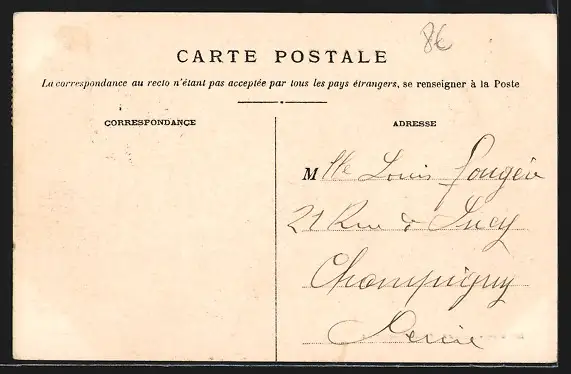 8€
CARTE POSTALE
La correspondance au recto n'étant pas acceptée par tous les pays étrangers, se renseigner à la Poste
CORRESPONDANCE
ADRESSE
Mlle Louis
21 Rue de Sucy
Champigny
Seine